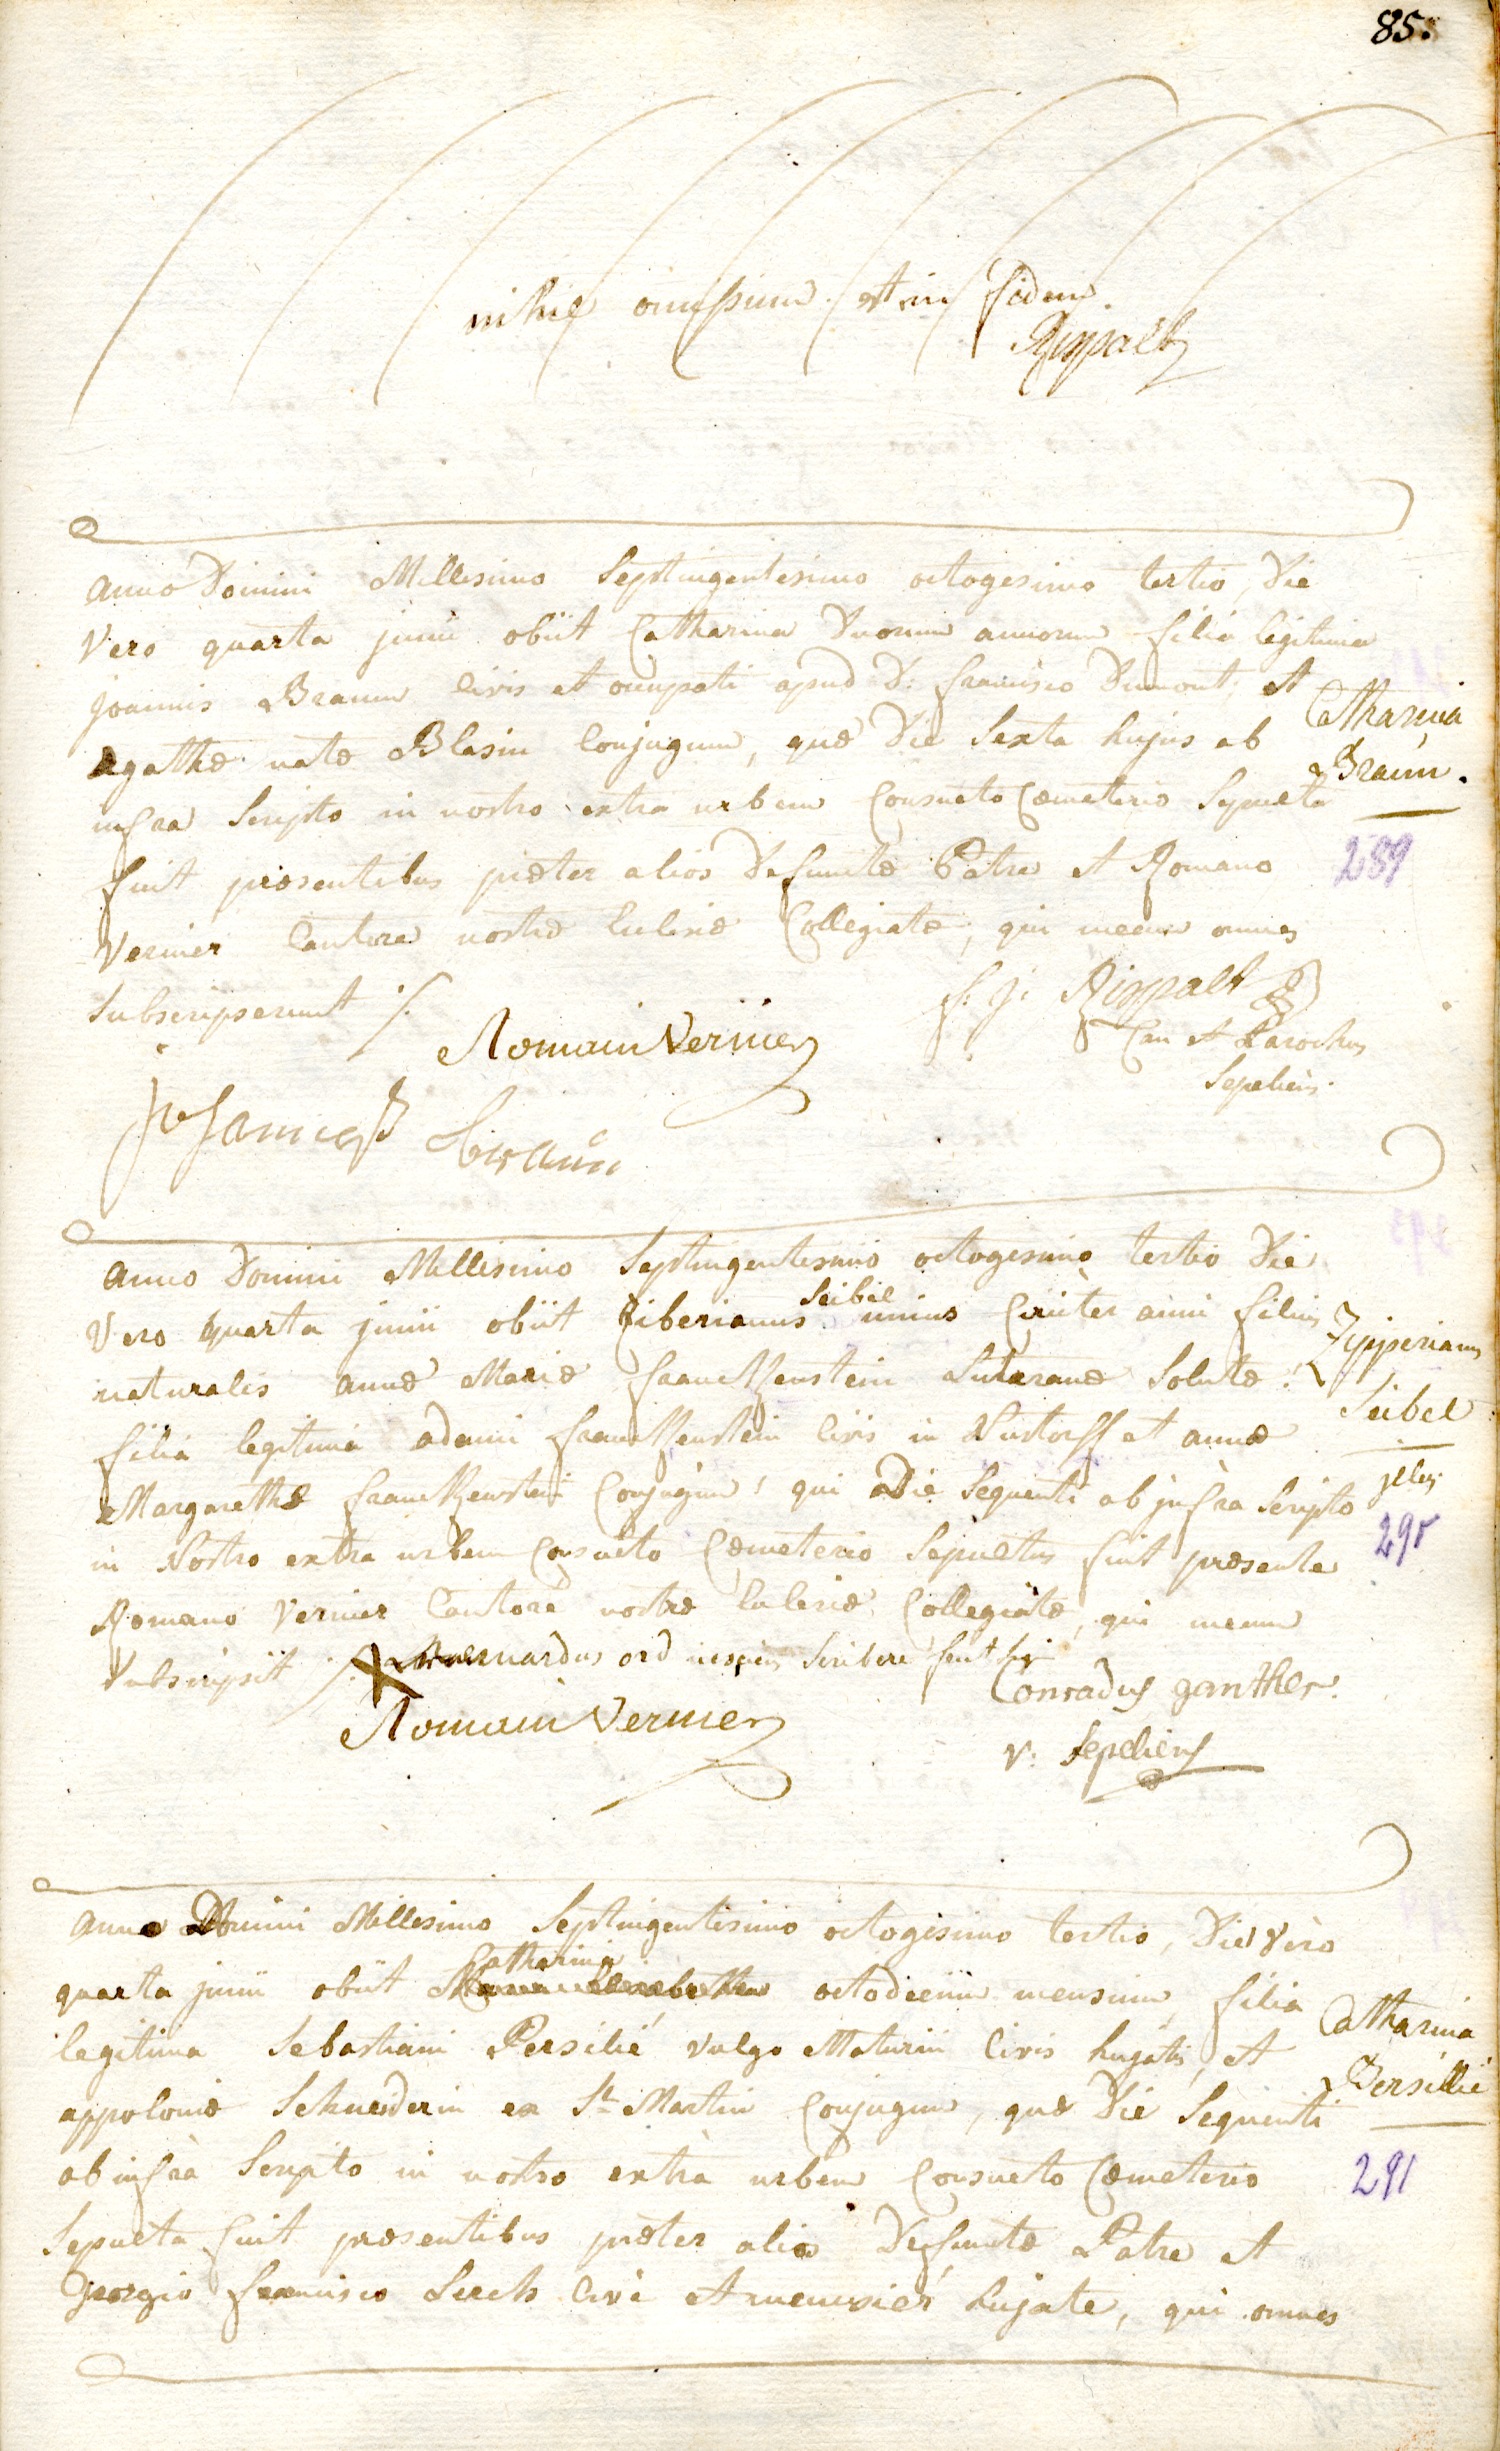 85.
nihil omissum est in fidem.
Rippalt
Anno Domini Millesimo Septingentesimo octogesimo tertio, Die
Vero quarta junii obiit Catharina Duorum annorum filia legitima
Joannis Braun Civis et occupati apud D: francisco Dumont, et
Agathæ natæ Blasin Conjugum, quæ Die Sexta hujus ab
infra Scripto in nostro extra urbem Consueto Cœmeterio Sepulta
fuit præsentibus præter alios Defunctæ Patre et Romano
Vernier Cantore nostræ Ecclesiæ Collegiatæ, qui mecum omnes
Subscripserunt ./.
Catharina
Braun.
289
f: j: Rippalt
Can et Parochus
Sepeliens.
Romain Vernier
Johannes Braun
Anno Domini Millesimo Septingentesimo octogesimo tertio Die
Vero quarta junii obiit Ziberianus Seibel unius Circiter anni filius
naturalis annæ Mariæ franckenstein Luteranæ Solutæ:
filia legitima adami franckenstein Civis in Nustorff et annæ
Margarethæ franckenstein Conjugum, qui Die Sequenti ab jnfra Scripto
in Nostro extra urbem Consueto Cœmeterio Sepultus fuit præsente
Romano Vernier Cantore nostræ Ecclesiæ Collegiatæ, qui mecum
Subscripsit ./. Bernardus ord nesciens Scribere fecit sig
Zypperianus
Seibel
jlleg.
290
Romain Vernier
Conradus ganther.
v: Sepeliens
Anno Domini Millesimo Septingentesimo octogesimo tertio, Die Vero
quarta junii obiit Catharina octodecim mensium filia
legitima Sebastiani Persilié vulgo Maturin Civis hujatis, et
appoloniæ Schneiderin ex St Martin Conjugum, quæ Die Sequenti
ab infrà Scripto in nostro extrà urbem Consueto Cœmeterio
Sepulta fuit præsentibus præter alios Defunctæ Patre et
Georgio francisco Lerch Cive et menusier hujate, qui omnes
Catharina
Bersillié
291